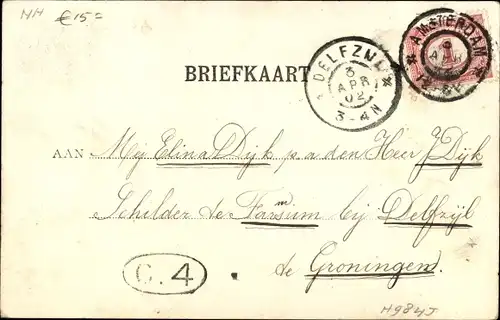 NH €15=
AMSTERDAM
3
APR
12-8V
DELFZIJL
3
APR
02
3-4N
BRIEFKAART
AAN Mej Elina Dijk p.a den Heer J Dijk
Schilder te Farmsum bij Delfzijl
de Groningen.
G.4
H984J